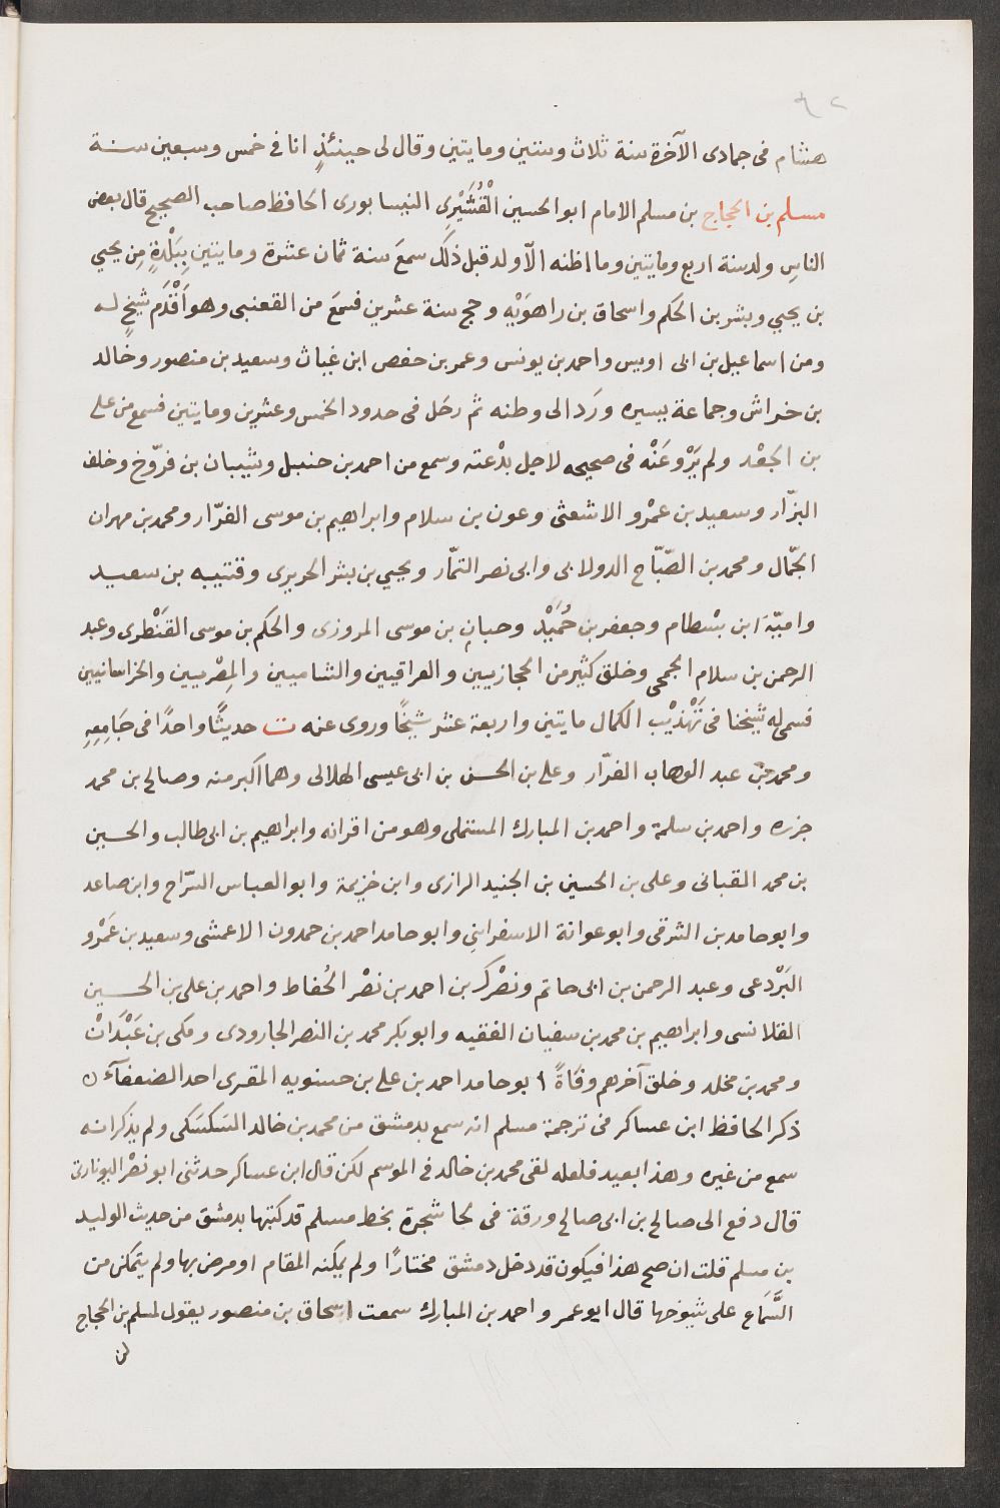 هشام فى جمادى الآخرة سنة ثلاث وستين ومايتين وقال لى حينئذٍ انا فى خمس وسبعين سنة
مسلم بن الحجاج بن مسلم الامام ابو الحسين الْقُشَيْرِى النيسابورى الحافظ صاحب الصحيح قال بعض
الناسِ ولد سنة اربع ومايتين وما اظنه الّا ولد قبل ذلك سمعَ سنة ثمان عشرة ومايتين بِبَلْدةٍ مِن يحيي
بن يحيي وبشر بن الحكم واسحاق بن راهوَيْهِ وحج سنة عشرين فسمعَ من القعنبى وهو اَقْدَم شيخٍ له
ومن اسماعيل بن ابى اويس واحمد بن يونس وعمر بن حفص ابن غياث وسعيد بن منصور وخالد
بن خراش وجماعة يسيره ورَد الى وطنه ثم رحَل فى حدود الخمس وعشرين ومايتين فسمع من على
بن الجعْد ولم يَرْوِ عَنْه فى صحيحه لاجل بدْعته وسمع من احمد بن حنبل وشيبان بن فرّوخ وخلف
البزّار وسعيد بن عمْرو الاشعثى وعون بن سلام وابراهيم بن موسى الفرّار ومحمد بن مهران
الجّمال ومحمد بن الصّبّاح الدولابى وابى نصر التمّار ويحيي بن بشر الحريرى وقتيبه بن سعيد
واميّة ابن بسْطام وجعفر بن حُمَيْد وحبان بن موسى المروزى والحكم بن موسى القنْطرى وعبد
الرحمن بن سلام الجمحى وخلق كثير من الحجازيين والعراقيين والشاميين والمِصْريين والخراسانيين
فسمى له شيخنا فى تَهْذيْب الكمال مايتين واربعة عشر شيخًا وروى عنه ت حديثًا واحدًا فى جَامِعِهِ
ومحمد بن عبد الوهاب الفرّار وعلى بن الحسن بن ابى عيسى الهلالى وهما اكبر منه وصالح بن محمد
جزره واحمد بن سلمة واحمد بن المبارك المستملى وهو من اقرانه وابراهيم بن ابى طالب والحسين
بن محمد القبانى وعلى بن الحسين بن الجنيد الرازى وابن خزيمة وابو العباس السّراج وابن صاعد
وابو حامد بن الشرقى وابو عوانة الاسفراينى وابو حامد احمد بن حمدون الاعمشى وسعيد بن عَمْرو
البَرْدعى وعبد الرحمن بن ابى حاتم ونصْرك بن احمد بن نصْر الحُفاط واحمد بن على بن الحسين
القلانسى وابراهيم بن محمد بن سفيان الفقيه وابو بكر محمد بن النصر الجارودى ومكى بن عَبْدَانْ
ومحمد بن مخلد وخلق آخرهم وفاةً ابو حامد احمد بن على بن حسنويه المقرى احد الضعفآء ٥
ذكر الحافظ ابن عساكر فى ترجمة مسلم انه سمع بدمشق من محمد بن خالد السَكسَكى ولم يذكر انه
سمع من غيره وهذا بعيد فلعله لقى محمد بن خالد فى الموسم لكن قال ابن عساكر حدثنى ابو نصْر اليونارتى
قال دفع الى صالح بن ابى صالح ورقة فى لحا شجرة بخط مسلم قد كتبها بدمشق من حديث الوليد
بن مسلم قلت ان صح هذا فيكون قد دخل دمشق مختارًا ولم يمكنه المقام او مرض بها ولم يتمكن من
السَّمَاع على شيوخها قال ابو عمر واحمد بن المبارك سمعت اسحاق بن منصور يقول لمسلم بن الحجاج
لن